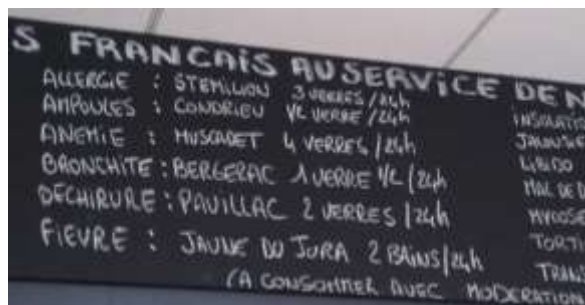 S FRANCAIS AU SERVICE DE N
ALLERGIE : STEMILION 3 VERRES/24h
AMPOULES : CONDRIEU 1/2 VERRE/24h
ANEMIE : MUSCADET 4 VERRES/24h
BRONCHITE : BERGERAC 1 VERRE 1/2/24h
DECHIRURE : PAUILLAC 2 VERRES/24h
FIEVRE : JAUNE DU JURA 2 BAINS/24h
(A CONSOMMER AVEC MODERATION
INSOLATI
JALOUSIE
LIBIDO
MAL DE
MYCOSE
TORTI
TRAN